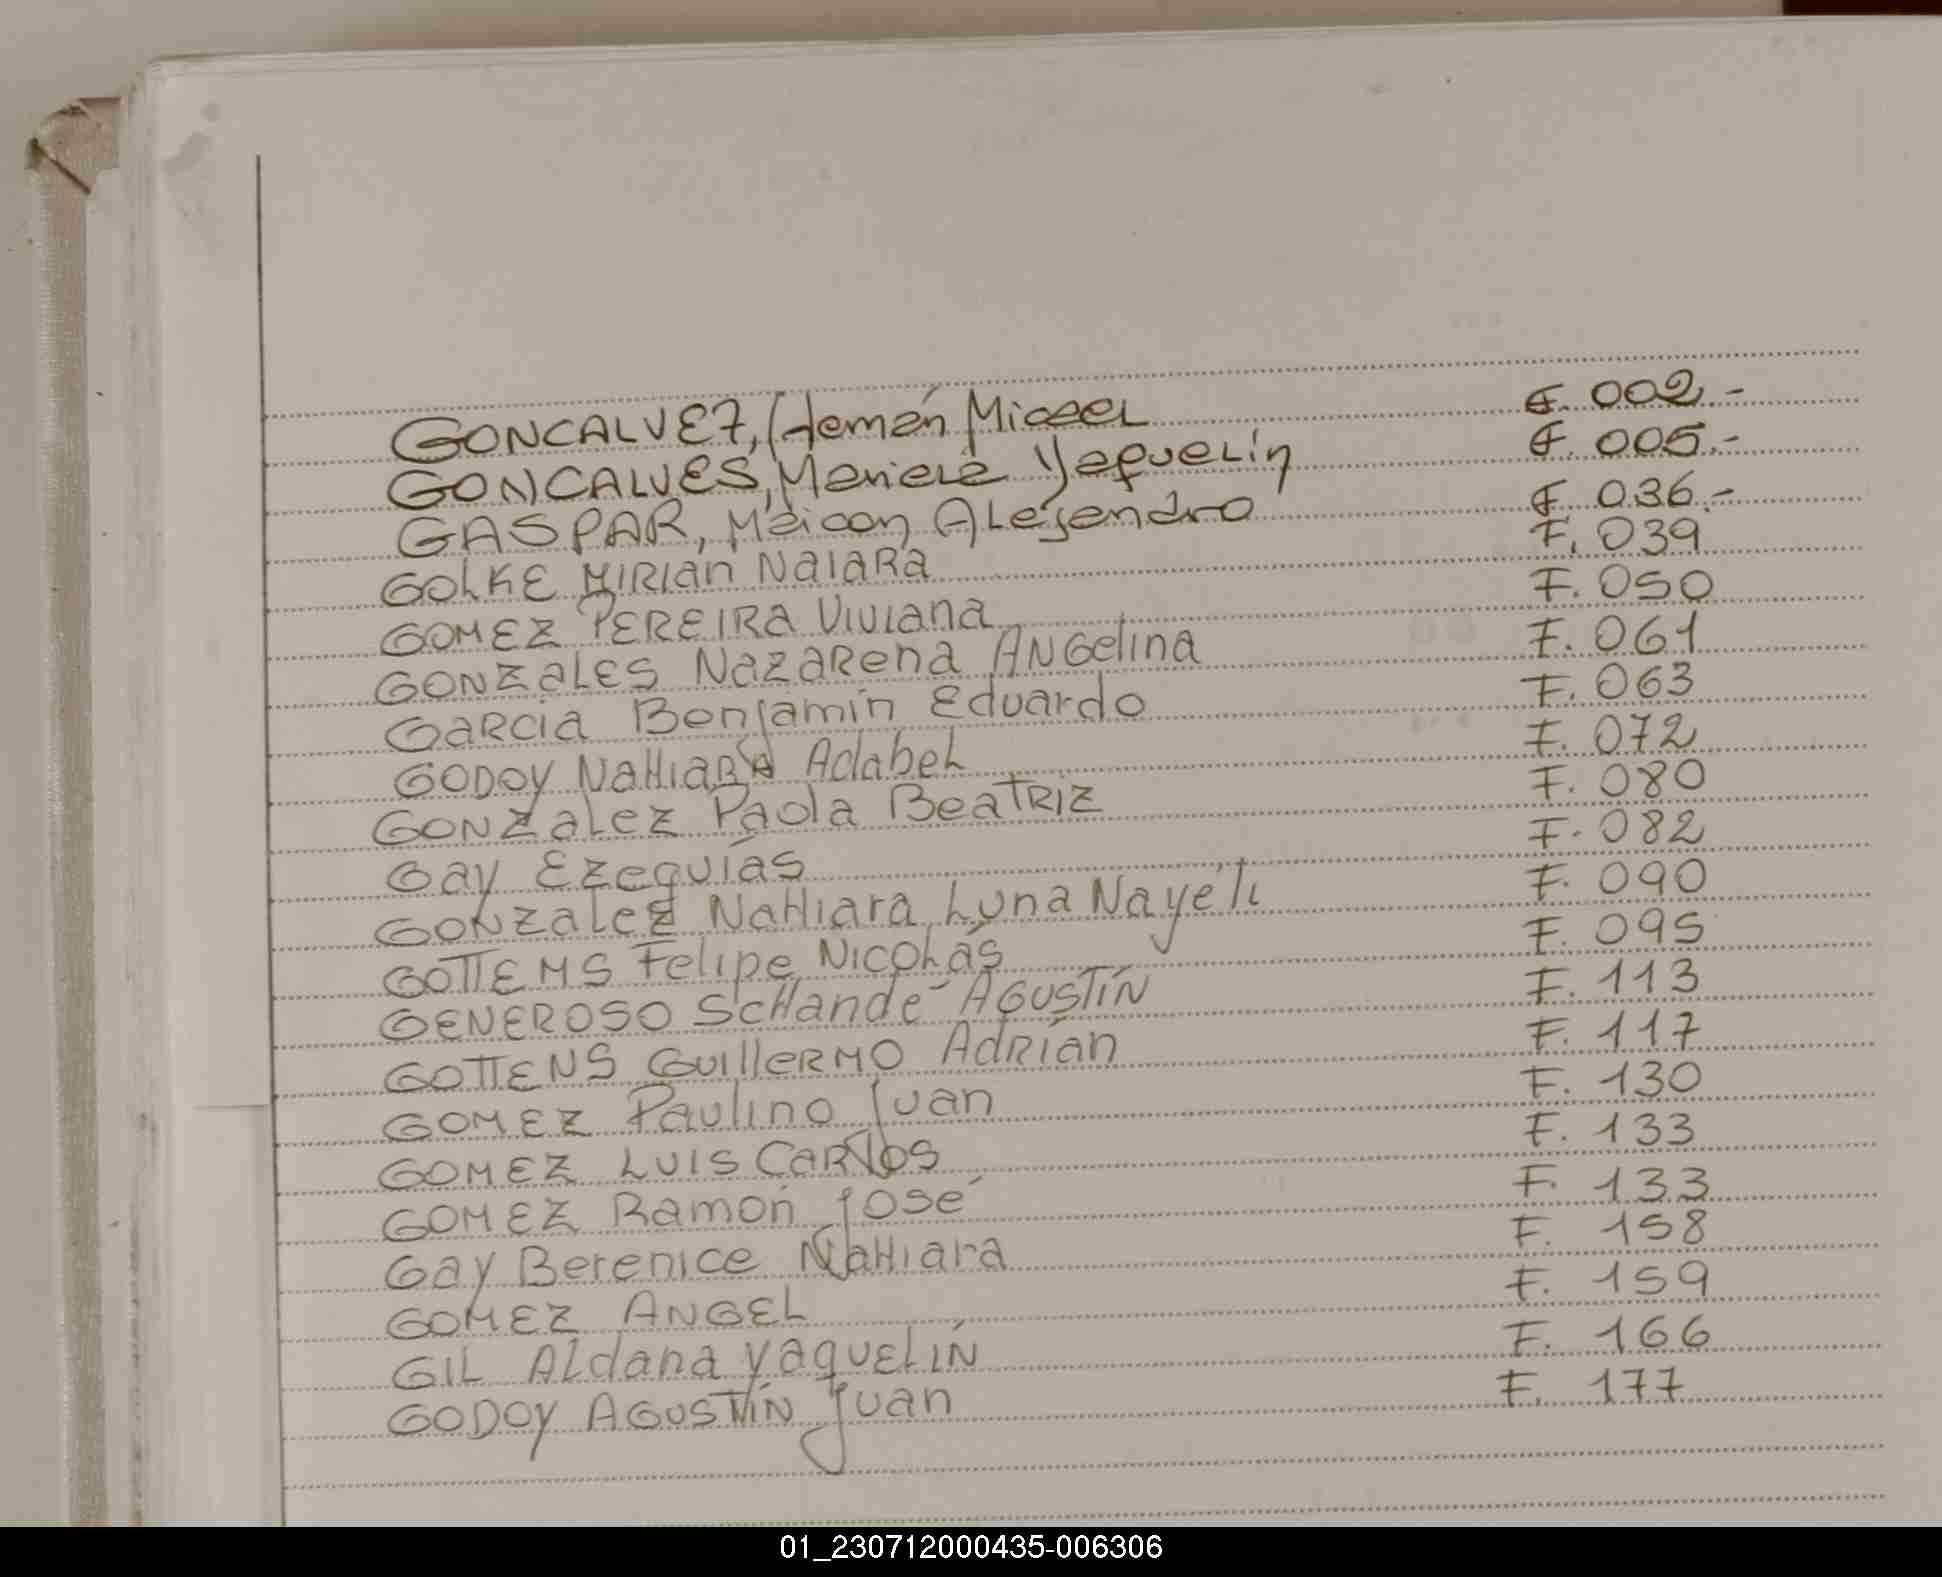 GONCALVEZ, Hernán Micael F. 002.-
GONCALVES, Mariela Yaquelín F. 005.-
GASPAR, Maicon Alejandro F. 036.-
GOLKE MIRIAN NAIARA F. 039
GOMEZ PEREIRA VIVIANA F. 050
GONZALES NAZARENA ANGELINA F. 061
GARCIA Benjamín Eduardo F. 063
GODOY NAHIARA Adabel F. 072
GONZALEZ Paola BEATRIZ F. 080
Gay Ezequías F. 082
GONZALEZ NAHIARA Luna Nayeli F. 090
GOTTEMS Felipe NICOLÁS F. 095
GENEROSO SCHANDE AGUSTÍN F. 113
GOTTENS GUILLERMO ADRIÁN F. 117
GOMEZ Paulino Juan F. 130
GOMEZ LUIS CARLOS F. 133
GOMEZ Ramón José F. 133
Gay Berenice NAHIARA F. 158
GOMEZ ANGEL F. 159
GIL Aldana YAQUELÍN F. 166
GODOY AGUSTÍN Juan F. 177
01_230712000435-006306